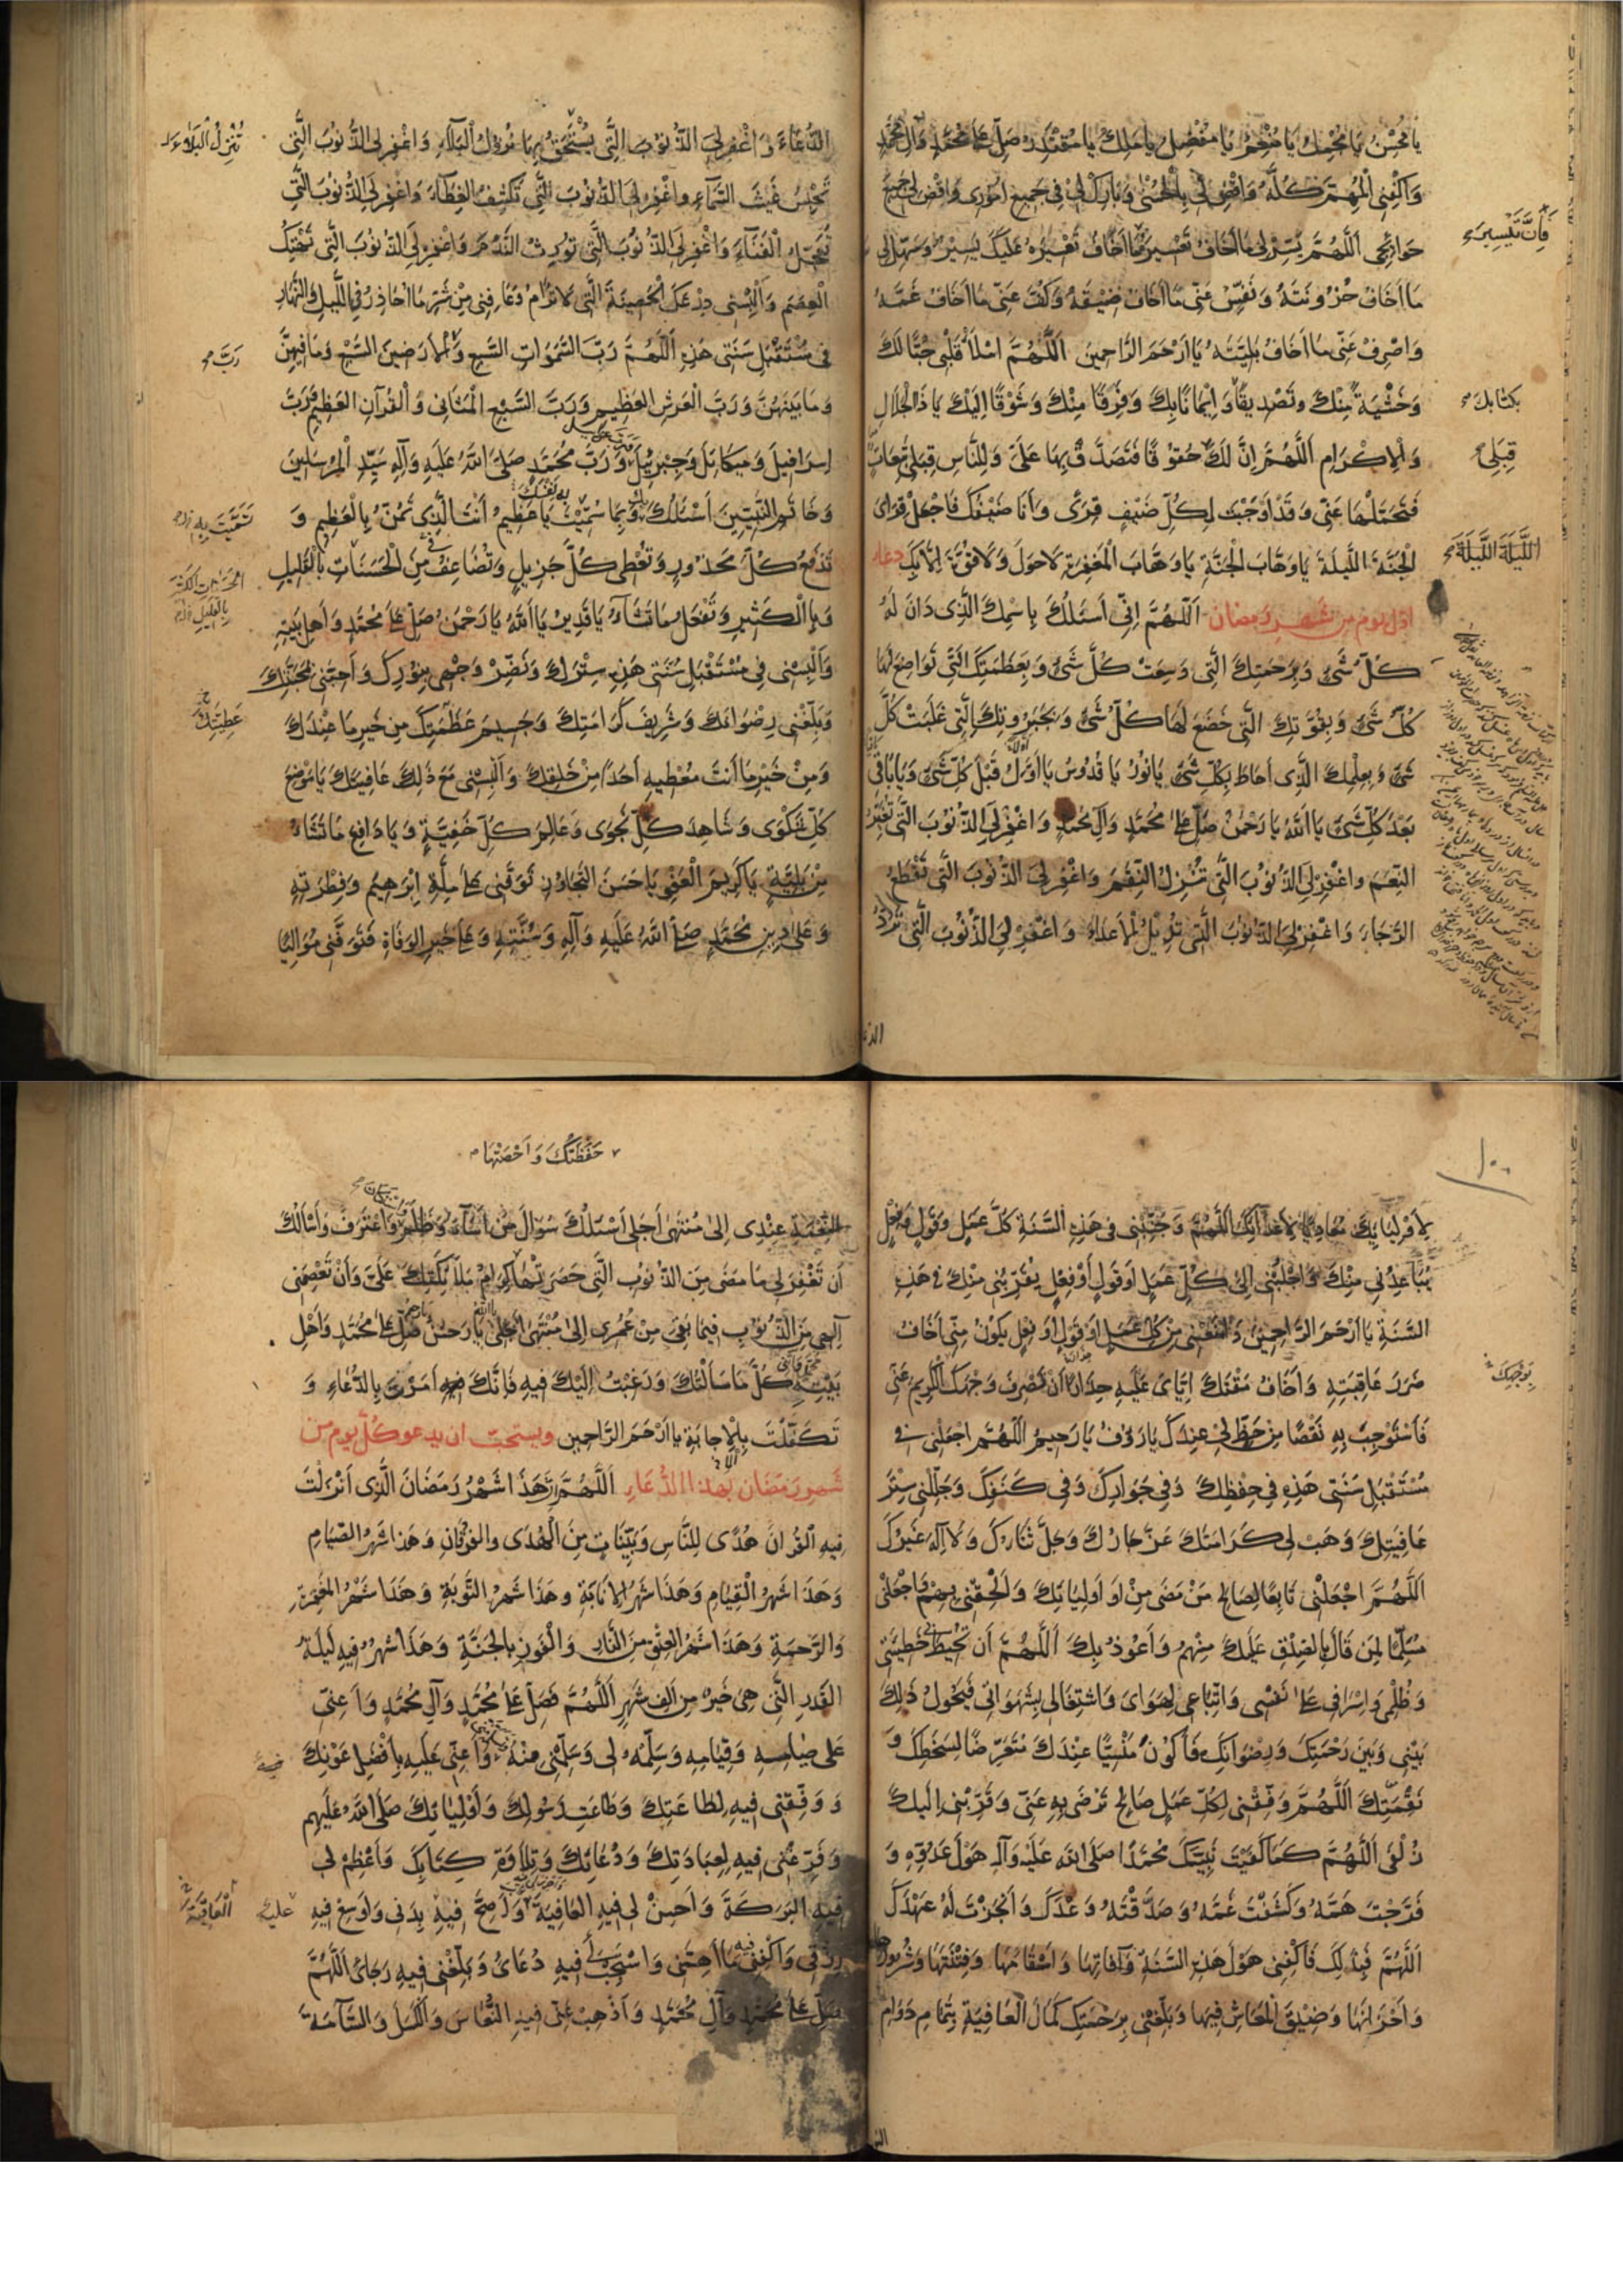 يا مُحْسِنُ يا مُجْمِلُ يا مُنْعِمُ يا مُفْضِلُ يا مَلِكُ يا مُقْتَدِرُ صَلِّ عَلى مُحَمَّدٍ وَآلِ مُحَمَّدٍ
وَاكْفِنِى الْمُهِمَّ كُلَّهُ وَاقْضِ لى بِالْحُسْنى وَبارِكْ لى فى جَميعِ اُمُورى وَاقْضِ لى جَميعَ
حَوائِجى اَللّهُمَّ يَسِّرْ لى ما اَخافُ تَعْسيرَهُ عَلَيْكَ يَسيرٌ وَسَهِّلْ لى
فَاِنَّ تَيْسيرَ
ما اَخافُ حُزُونَتَهُ وَنَفِّسْ عَنّى ما اَخافُ ضيقَهُ وَكُفَّ عَنّى ما اَخافُ غَمَّهُ
وَاصْرِفْ عَنّى ما اَخافُ بَلِيَّتَهُ يا اَرْحَمَ الرّاحِمينَ اَللّهُمَّ امْلَأْ قَلْبى حُبّاً لَكَ
وَخَشْيَةً مِنْكَ وتَصْديقاً وَايماناً بِكَ وَفَرَقاً مِنْكَ وَشَوْقاً اِلَيْكَ يا ذَا الْجَلالِ
بكتابك
وَالْاِكْرامِ اَللّهُمَّ اِنَّ لَكَ حُقُوقاً فَتَصَدَّقْ بِها عَلَىَّ وَلِلنّاسِ قِبَلى تَبِعاتٌ
قِبَلى
فَتَحَمَّلْها عَنّى وَقَدْ اَوْجَبْتَ لِكُلِّ ضَيْفٍ قِرىً وَاَنَا ضَيْفُكَ فَاجْعَلْ قِراىَ
الْجَنَّةَ اللَّيْلَةَ يا وَهّابَ الْجَنَّةِ يا وَهّابَ الْمَغْفِرَةِ لا حَوْلَ وَلا قُوَّةَ اِلّا بِكَ دعاء
اللَّيْلَةَ اللَّيْلَةَ
اوّل يوم من شهر رمضان اَللّهُمَّ اِنّى اَسْئَلُكَ بِاسْمِكَ الَّذى دانَ لَهُ
كُلُّ شَىْءٍ وَبِرَحْمَتِكَ الَّتى وَسِعَتْ كُلَّ شَىْءٍ وَبِعَظَمَتِكَ الَّتى تَواضَعَ لَها
كُلُّ شَىْءٍ وَبِقُوَّتِكَ الَّتى خَضَعَ لَها كُلُّ شَىْءٍ وَبِجَبَرُوتِكَ الَّتى غَلَبَتْ كُلَّ
شَىْءٍ وَبِعِلْمِكَ الَّذى اَحاطَ بِكُلِّ شَىْءٍ يا نُورُ يا قُدُّوسُ يا اَوَّلُ قَبْلَ كُلِّ شَىْءٍ وَيا باقى
بَعْدَ كُلِّ شَىْءٍ يا اَللهُ يا رَحْمنُ صَلِّ عَلى مُحَمَّدٍ وَآلِ مُحَمَّدٍ وَاغْفِرْ لِىَ الذُّنُوبَ الَّتى تُغَيِّرُ
النِّعَمَ وَاغْفِرْ لِىَ الذُّنُوبَ الَّتى تُنْزِلُ النِّقَمَ وَاغْفِرْ لِىَ الذُّنُوبَ الَّتى تَقْطَعُ
الرَّجاءَ وَاغْفِرْ لِىَ الذُّنُوبَ الَّتى تُديلُ الْاَعْداءَ وَاغْفِرْ لِىَ الذُّنُوبَ الَّتى تَرُدُّ
الدُّعاءَ وَاغْفِرْ لِىَ الذُّنُوبَ الَّتى يُسْتَحَقُّ بِها نُزُولُ الْبَلاءِ وَاغْفِرْ لِىَ الذُّنُوبَ الَّتى
تُنْزِلُ الْبَلاءَ
تَحْبِسُ غَيْثَ السَّماءِ وَاغْفِرْ لِىَ الذُّنُوبَ الَّتى تَكْشِفُ الْغِطاءَ وَاغْفِرْ لِىَ الذُّنُوبَ الَّتى
تُعَجِّلُ الْفَناءَ وَاغْفِرْ لِىَ الذُّنُوبَ الَّتى تُورِثُ النَّدَمَ وَاغْفِرْ لِىَ الذُّنُوبَ الَّتى تَهْتِكُ
الْعِصَمَ وَاَلْبِسْنى دِرْعَكَ الْحَصينَةَ الَّتى لا تُرامُ وَعافِنى مِنْ شَرِّ ما اُحاذِرُ فِى اللَّيْلِ وَالنَّهارِ
فى مُسْتَقْبَلِ سَنَتى هذِهِ اَللّهُمَّ رَبَّ السَّمواتِ السَّبْعِ وَالْاَرَضينَ السَّبْعِ وَما فيهِنَّ
رَبَّ
وَما بَيْنَهُنَّ وَرَبَّ الْعَرْشِ الْعَظيمِ وَرَبَّ السَّبْعِ الْمَثانى وَالْقُرآنِ الْعَظيمِ وَرَبَّ
اِسْرافيلَ وَميكائيلَ وَجَبْرَئيلَ وَرَبَّ مُحَمَّدٍ صَلَّى اللهُ عَلَيْهِ وَآلِهِ سَيِّدِ الْمُرْسَلينَ
وَخاتَمِ النَّبِيّينَ اَسْئَلُكَ بِكَ وَبِما سَمَّيْتَ بِهِ نَفْسَكَ يا عَظيمُ اَنْتَ الَّذى تَمُنُّ بِالْعَظيمِ وَ
تَدْفَعُ كُلَّ مَحْذُورٍ وَتُعْطى كُلَّ جَزيلٍ وَتُضاعِفُ مِنَ الْحَسَناتِ بِالْقَليلِ
وَبِالْكَثيرِ وَتَفْعَلُ ما تَشاءُ يا قَديرُ يا اَللهُ يا رَحْمنُ صَلِّ عَلى مُحَمَّدٍ وَاَهْلِ بَيْتِهِ
وَاَلْبِسْنى فى مُسْتَقْبَلِ سَنَتى هذِهِ سِتْرَكَ وَنَضِّرْ وَجْهى بِنُورِكَ وَاَحِبَّنى بِمَحَبَّتِكَ
وَبَلِّغْنى رِضْوانَكَ وَشَريفَ كَرامَتِكَ وَجَسيمَ عَظَمَتِكَ مِنْ خَيْرِ ما عِنْدَكَ
عَطِيَّتِكَ
وَمِنْ خَيْرِ ما اَنْتَ مُعْطيهِ اَحَداً مِنْ خَلْقِكَ وَاَلْبِسْنى مَعَ ذلِكَ عافِيَتَكَ يا مَوْضِعَ
كُلِّ شَكْوى وَشاهِدَ كُلِّ نَجْوى وَعالِمَ كُلِّ خَفِيَّةٍ وَيا دافِعَ ما تَشاءُ
مِنْ بَلِيَّةٍ يا كَريمَ الْعَفْوِ يا حَسَنَ التَّجاوُزِ تَوَفَّنى عَلى مِلَّةِ اِبْرهيمَ وَفِطْرَتِهِ
وَعَلى دينِ مُحَمَّدٍ صَلَّى اللهُ عَلَيْهِ وَآلِهِ وَسُنَّتِهِ وَعَلى خَيْرِ الْوَفاةِ فَتَوَفَّنى مُوالِياً
١٠٠
لِاَوْلِيائِكَ مُعادِياً لِاَعْدائِكَ اَللّهُمَّ وَجَنِّبْنى فى هذِهِ السَّنَةِ كُلَّ عَمَلٍ وَقَوْلٍ وَفِعْلٍ
يُباعِدُنى مِنْكَ وَاجْلِبْنى اِلى كُلِّ عَمَلٍ اَوْ قَوْلٍ اَوْ فِعْلٍ يُقَرِّبُنى مِنْكَ فى هذِهِ
السَّنَةِ يا اَرْحَمَ الرّاحِمينَ وَامْنَعْنى مِنْ كُلِّ عَمَلٍ اَوْ قَوْلٍ اَوْ فِعْلٍ يَكُونُ مِنّى اَخافُ
ضَرَرَ عاقِبَتِهِ وَاَخافُ مَقْتَكَ اِيّاىَ عَلَيْهِ حِذاراً اَنْ تَصْرِفَ وَجْهَكَ الْكَريمَ عَنّى
بِوَجْهِكَ
فَاَسْتَوْجِبَ بِهِ نَقْصاً مِنْ حَظٍّ لى عِنْدَكَ يا رَؤُفُ يا رَحيمُ اَللّهُمَّ اجْعَلْنى فى
مُسْتَقْبَلِ سَنَتى هذِهِ فى حِفْظِكَ وَفى جِوارِكَ وَفى كَنَفِكَ وَجَلِّلْنى سِتْرَ
عافِيَتِكَ وَهَبْ لى كَرامَتَكَ عَزَّ جارُكَ وَجَلَّ ثَناؤُكَ وَلا اِلهَ غَيْرُكَ
اَللّهُمَّ اجْعَلْنى تابِعاً لِصالِحِ مَنْ مَضى مِنْ اَوْلِيائِكَ وَاَلْحِقْنى بِهِمْ وَاجْعَلْنى
مُسَلِّماً لِمَنْ قالَ بِالصِّدْقِ عَلَيْكَ مِنْهُمْ وَاَعُوذُ بِكَ اَللّهُمَّ اَنْ تُحيطَ بى خَطيئَتى
وَظُلْمى وَاِسْرافى عَلى نَفْسى وَاتِّباعى لِهَواىَ وَاشْتِغالى بِشَهَواتى فَيَحُولُ ذلِكَ
بَيْنى وَبَيْنَ رَحْمَتِكَ وَرِضْوانِكَ فَاَكُونَ مَنْسِيّاً عِنْدَكَ مُتَعَرِّضاً لِسَخَطِكَ وَ
نَقِمَتِكَ اَللّهُمَّ وَفِّقْنى لِكُلِّ عَمَلٍ صالِحٍ تَرْضى بِهِ عَنّى وَقَرِّبْنى اِلَيْكَ
زُلْفى اَللّهُمَّ كَما كَفَيْتَ نَبِيَّكَ مُحَمَّداً صَلَّى اللهُ عَلَيْهِ وَآلِهِ هَوْلَ عَدُوِّهِ وَ
فَرَّجْتَ هَمَّهُ وَكَشَفْتَ غَمَّهُ وَصَدَقْتَهُ وَعْدَكَ وَاَنْجَزْتَ لَهُ عَهْدَكَ
اَللّهُمَّ فَبِذلِكَ فَاكْفِنى هَوْلَ هذِهِ السَّنَةِ وَآفاتِها وَاَسْقامَها وَفِتْنَتَها وَشُرُورَها
وَاَحْزانَها وَضيقَ الْمَعاشِ فيها وَبَلِّغْنى بِرَحْمَتِكَ كَمالَ الْعافِيَةِ بِتَمامِ دَوامِ
حَفَظَتُكَ وَاَحْصَتْها
النِّعْمَةِ عِنْدى اِلى مُنْتَهى اَجَلى اَسْئَلُكَ سُؤالَ مَنْ اَساءَ وَظَلَمَ وَاعْتَرَفَ وَاَسْأَلُكَ
اَنْ تَغْفِرَ لى ما مَضى مِنَ الذُّنُوبِ الَّتى حَصَرَتْها كِرامُ مَلائِكَتِكَ عَلَىَّ وَاَنْ تَعْصِمَنى
اِلهى مِنَ الذُّنُوبِ فيما بَقِىَ مِنْ عُمُرى اِلى مُنْتَهى اَجَلى يا رَحْمنُ صَلِّ عَلى مُحَمَّدٍ وَاَهْلِ
بَيْتِهِ كُلَّ ما سَأَلْتُكَ وَرَغِبْتُ اِلَيْكَ فيهِ فَاِنَّكَ اَمَرْتَنى بِالدُّعاءِ وَ
تَكَفَّلْتَ بِالْاِجابَةِ يا اَرْحَمَ الرّاحِمينَ ويستحبّ ان يدعو كُلّ يوم من
شهر رمضان بهذا الدُّعاءِ اَللّهُمَّ هذا شَهْرُ رَمَضانَ الَّذى اَنْزَلْتَ
فيهِ الْقُرانَ هُدىً لِلنّاسِ وَبَيِّناتٍ مِنَ الْهُدى وَالْفُرْقانِ وَهذا شَهْرُ الصِّيامِ
وَهذا شَهْرُ الْقِيامِ وَهذا شَهْرُ الْاِنابَةِ وَهذا شَهْرُ التَّوْبَةِ وَهذا شَهْرُ الْمَغْفِرَةِ
وَالرَّحْمَةِ وَهذا شَهْرُ الْعِتْقِ مِنَ النّارِ وَالْفَوْزِ بِالْجَنَّةِ وَهذا شَهْرٌ فيهِ لَيْلَةُ
الْقَدْرِ الَّتى هِىَ خَيْرٌ مِنْ اَلْفِ شَهْرٍ اَللّهُمَّ فَصَلِّ عَلى مُحَمَّدٍ وَآلِ مُحَمَّدٍ وَاَعِنّى
عَلى صِيامِهِ وَقِيامِهِ وَسَلِّمْهُ لى وَسَلِّمْنى مِنْهُ وَاَعِنّى عَلَيْهِ بِاَفْضَلِ عَوْنِكَ
فيه
وَوَفِّقْنى فيهِ لِطاعَتِكَ وَطاعَةِ رَسُولِكَ وَاَوْلِيائِكَ صَلَّى اللهُ عَلَيْهِمْ
وَفَرِّغْنى فيهِ لِعِبادَتِكَ وَدُعائِكَ وَتِلاوَةِ كِتابِكَ وَاَعْظِمْ لى
فيهِ الْبَرَكَةَ وَاَحْسِنْ لى فيهِ الْعافِيَةَ وَاَصِحَّ فيهِ بَدَنى وَاَوْسِعْ فيهِ
الْعاقِبَةَ
رِزْقى وَاكْفِنى فيهِ ما اَهَمَّنى وَاسْتَجِبْ فيهِ دُعائى وَبَلِّغْنى فيهِ رَجائى اَللّهُمَّ
صَلِّ عَلى مُحَمَّدٍ وَآلِ مُحَمَّدٍ وَاَذْهِبْ عَنّى فيهِ النُّعاسَ وَالْكَسَلَ وَالسَّآمَةَ